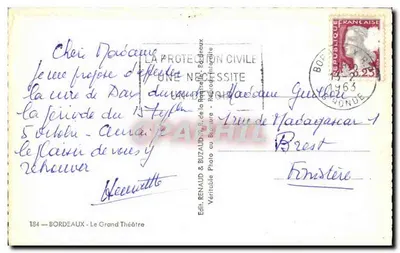 Chère Madame
je me propose d'effectuer
la cure de Dax durant
la période du 15 Septbre
5 octobre - Aurai
le plaisir de vous y
retrouver
Henriette
184 - BORDEAUX - Le Grand Théâtre
Edit. RENAUD & BUZAUD, Bordeaux
Véritable Photo au Bromure
LA PROTECTION CIVILE
UNE NECESSITE
RÉPUBLIQUE FRANÇAISE
0,25
1963
GIRONDE
Madame
1 rue de Madagascar
Brest
Finistère